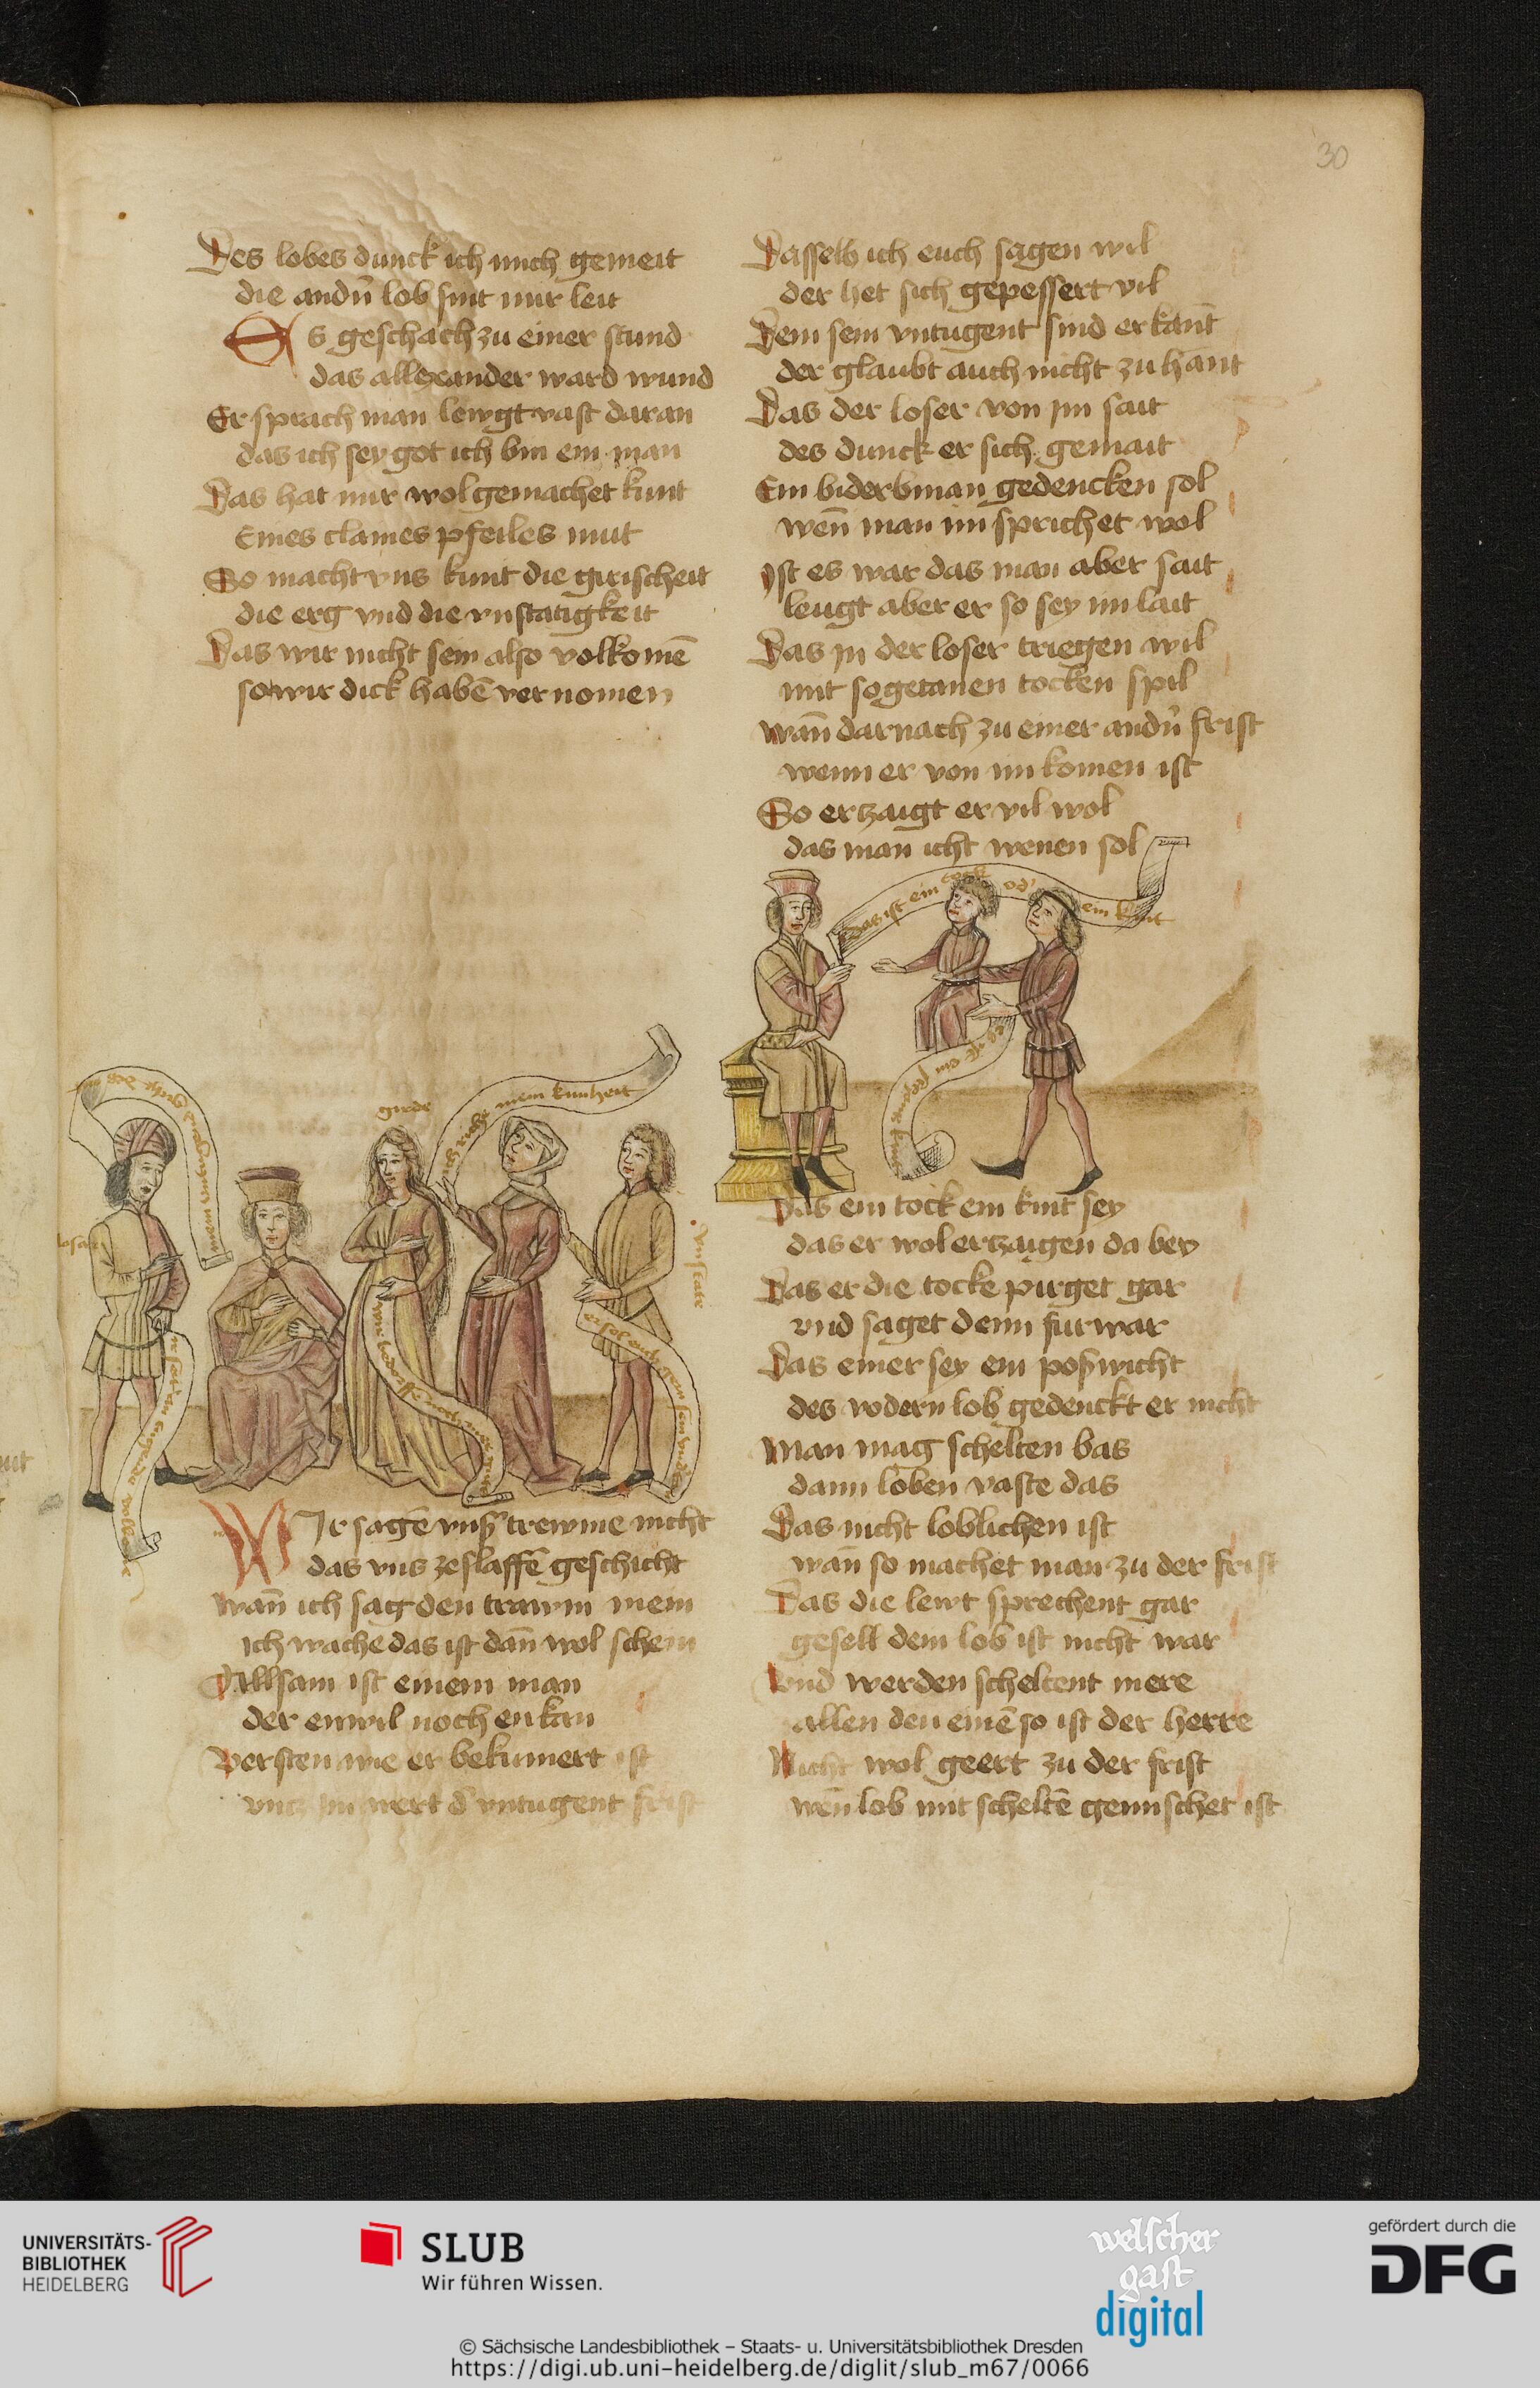 30
Des lobes dunck ich mich gemeit
die andn̄ lob sint mir leit
Es geschach zu einer stund
das allexander ward wund
Er sprach man lewgt vast daran
das ich sey got ich bin ein man
Das hat mir wol gemachet kunt
Eines claines pfeiles
So macht vns kunt die girischeit
die erg vnd die vnstatigkeit
Das wir nicht sein also volkomē
so wir dick habē vernomen
girde
mein kunheit
vnstate
Wir sagē vnß trewme nicht
das vns ze slaffē geschicht
wan̄ ich sag den trawm mein
ich wache das ist dan̄ wol schein
Allsam ist einem man
der enwil noch enkan
Versten wie er bekumert ist
vncz im wert d' vntugent frist
Dasselb ich euch sagen wil
der het sich gepessert vil
Dem sein vntugent sind erkānt
der glaubt auch nicht zu hānt
Das der loser von im sait
des dunck er sich gemait
Ein biderbman gedencken sol
wen̄ man im sprichet wol
Ist es war das man aber sait
leugt aber er so sey im lait
Das in der loser triegen wil
mit sogetanen tocken spil
wan̄ darnach zu einer andn̄ frist
wenn er von im komen ist
So erzaigt er vil wol
das man icht wenen sol
das ist ein tock od' ein kint
Das ein tock ein kint sey
das er wol erzaigen da bey
Das er die tocke pirget gar
vnd saget denn fur war
Das einer sey ein poßwicht
des vodern lob gedenckt er nicht
Man mag schelten bas
dann loben vaste das
Das nicht loblichen ist
wan̄ so machet man zu der frist
Das die lewt sprechent gar
gesell dem lob ist nicht war
Vnd werden scheltent mere
allen den einē so ist der herre
Nicht wol geert zu der frist
wen̄ lob mit scheltē gemischet ist
UNIVERSITÄTS-
BIBLIOTHEK
HEIDELBERG
SLUB
Wir führen Wissen.
welscher
gast
digital
gefördert durch die
DFG
© Sächsische Landesbibliothek – Staats- u. Universitätsbibliothek Dresden
https://digi.ub.uni-heidelberg.de/diglit/slub_m67/0066